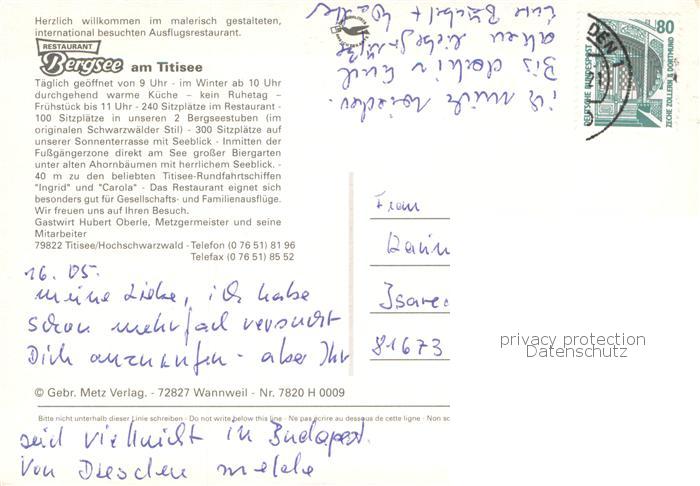 Herzlich willkommen im malerisch gestalteten,
international besuchten Ausflugsrestaurant.
RESTAURANT
Bergsee am Titisee
Täglich geöffnet von 9 Uhr - im Winter ab 10 Uhr
durchgehend warme Küche – kein Ruhetag –
Frühstück bis 11 Uhr - 240 Sitzplätze im Restaurant -
100 Sitzplätze in unseren 2 Bergseestuben (im
originalen Schwarzwälder Stil) - 300 Sitzplätze auf
unserer Sonnenterrasse mit Seeblick - Inmitten der
Fußgängerzone direkt am See großer Biergarten
unter alten Ahornbäumen mit herrlichem Seeblick. -
40 m zu den beliebten Titisee-Rundfahrtschiffen
"Ingrid" und "Carola" - Das Restaurant eignet sich
besonders gut für Gesellschafts- und Familienausflüge.
Wir freuen uns auf Ihren Besuch.
Gastwirt Hubert Oberle, Metzgermeister und seine
Mitarbeiter
79822 Titisee/Hochschwarzwald - Telefon (0 76 51) 81 96
Telefax (0 76 51) 85 52
16. 05.
meine Liebe, ich habe
schon mehrfach versucht
Dich anzurufen - aber Ihr
© Gebr. Metz Verlag. - 72827 Wannweil - Nr. 7820 H 0009
Bitte nicht unterhalb dieser Linie schreiben - Do not write below this line - Ne pas écrire au dessous de cette ligne - Non sc
seid vielleicht in Budapest.
Von Dresden melde
ich mich wieder.
Bis dahin Euch
allen liebe Grüße
Eure Bärbel +
80
DEUTSCHE BUNDESPOST
ZECHE ZOLLERN II DORTMUND
DEN 1
Frau
Isare
81673
privacy protection
Datenschutz